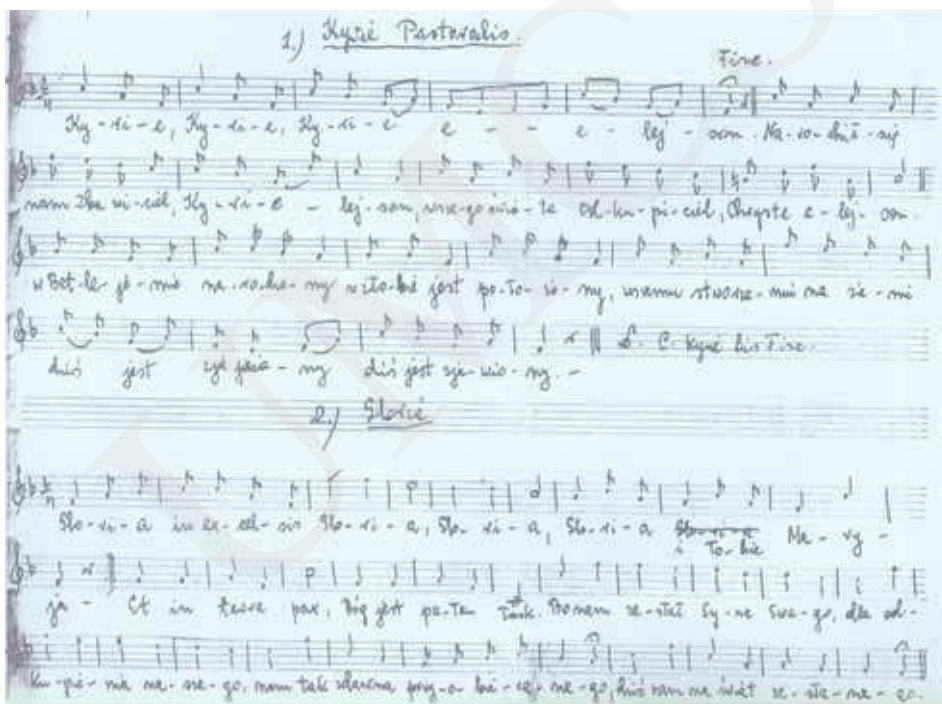 1.) Kyrie Pastoralis.
Fine.
Ky-ri-e, Ky-ri-e, Ky-ri-e e - - e - lej - son. Na-ro-dził-się
nam Zba-wi-ciel, Ky-ri-e - lej-son, wsze-go świa-ta Od-ku-pi-ciel, Chryste e-lej-son.
w Bet-le-je-mie na-ro-dzo-ny w żło-bie jest po-ło-żo-ny, wsemu stworze-niu na zie-mi
dziś jest ny dziś jest zja-wio-ny. - D. C. Kyrie bis Fine.
2.) Gloria
Glo-ri-a in ex-cel-sis Glo-ri-a, Glo-ri-a, Glo-ri-a i To-bie Ma-ry-
ja - Et in terra pax, Bóg jest pa-tak. Bo nam ze-słał Sy-na Swe-go, dla od-
ku-pie-nia na-sze-go, nam tak ne-go, dziś nam na świat ze-sła-ne-go.
UMCS